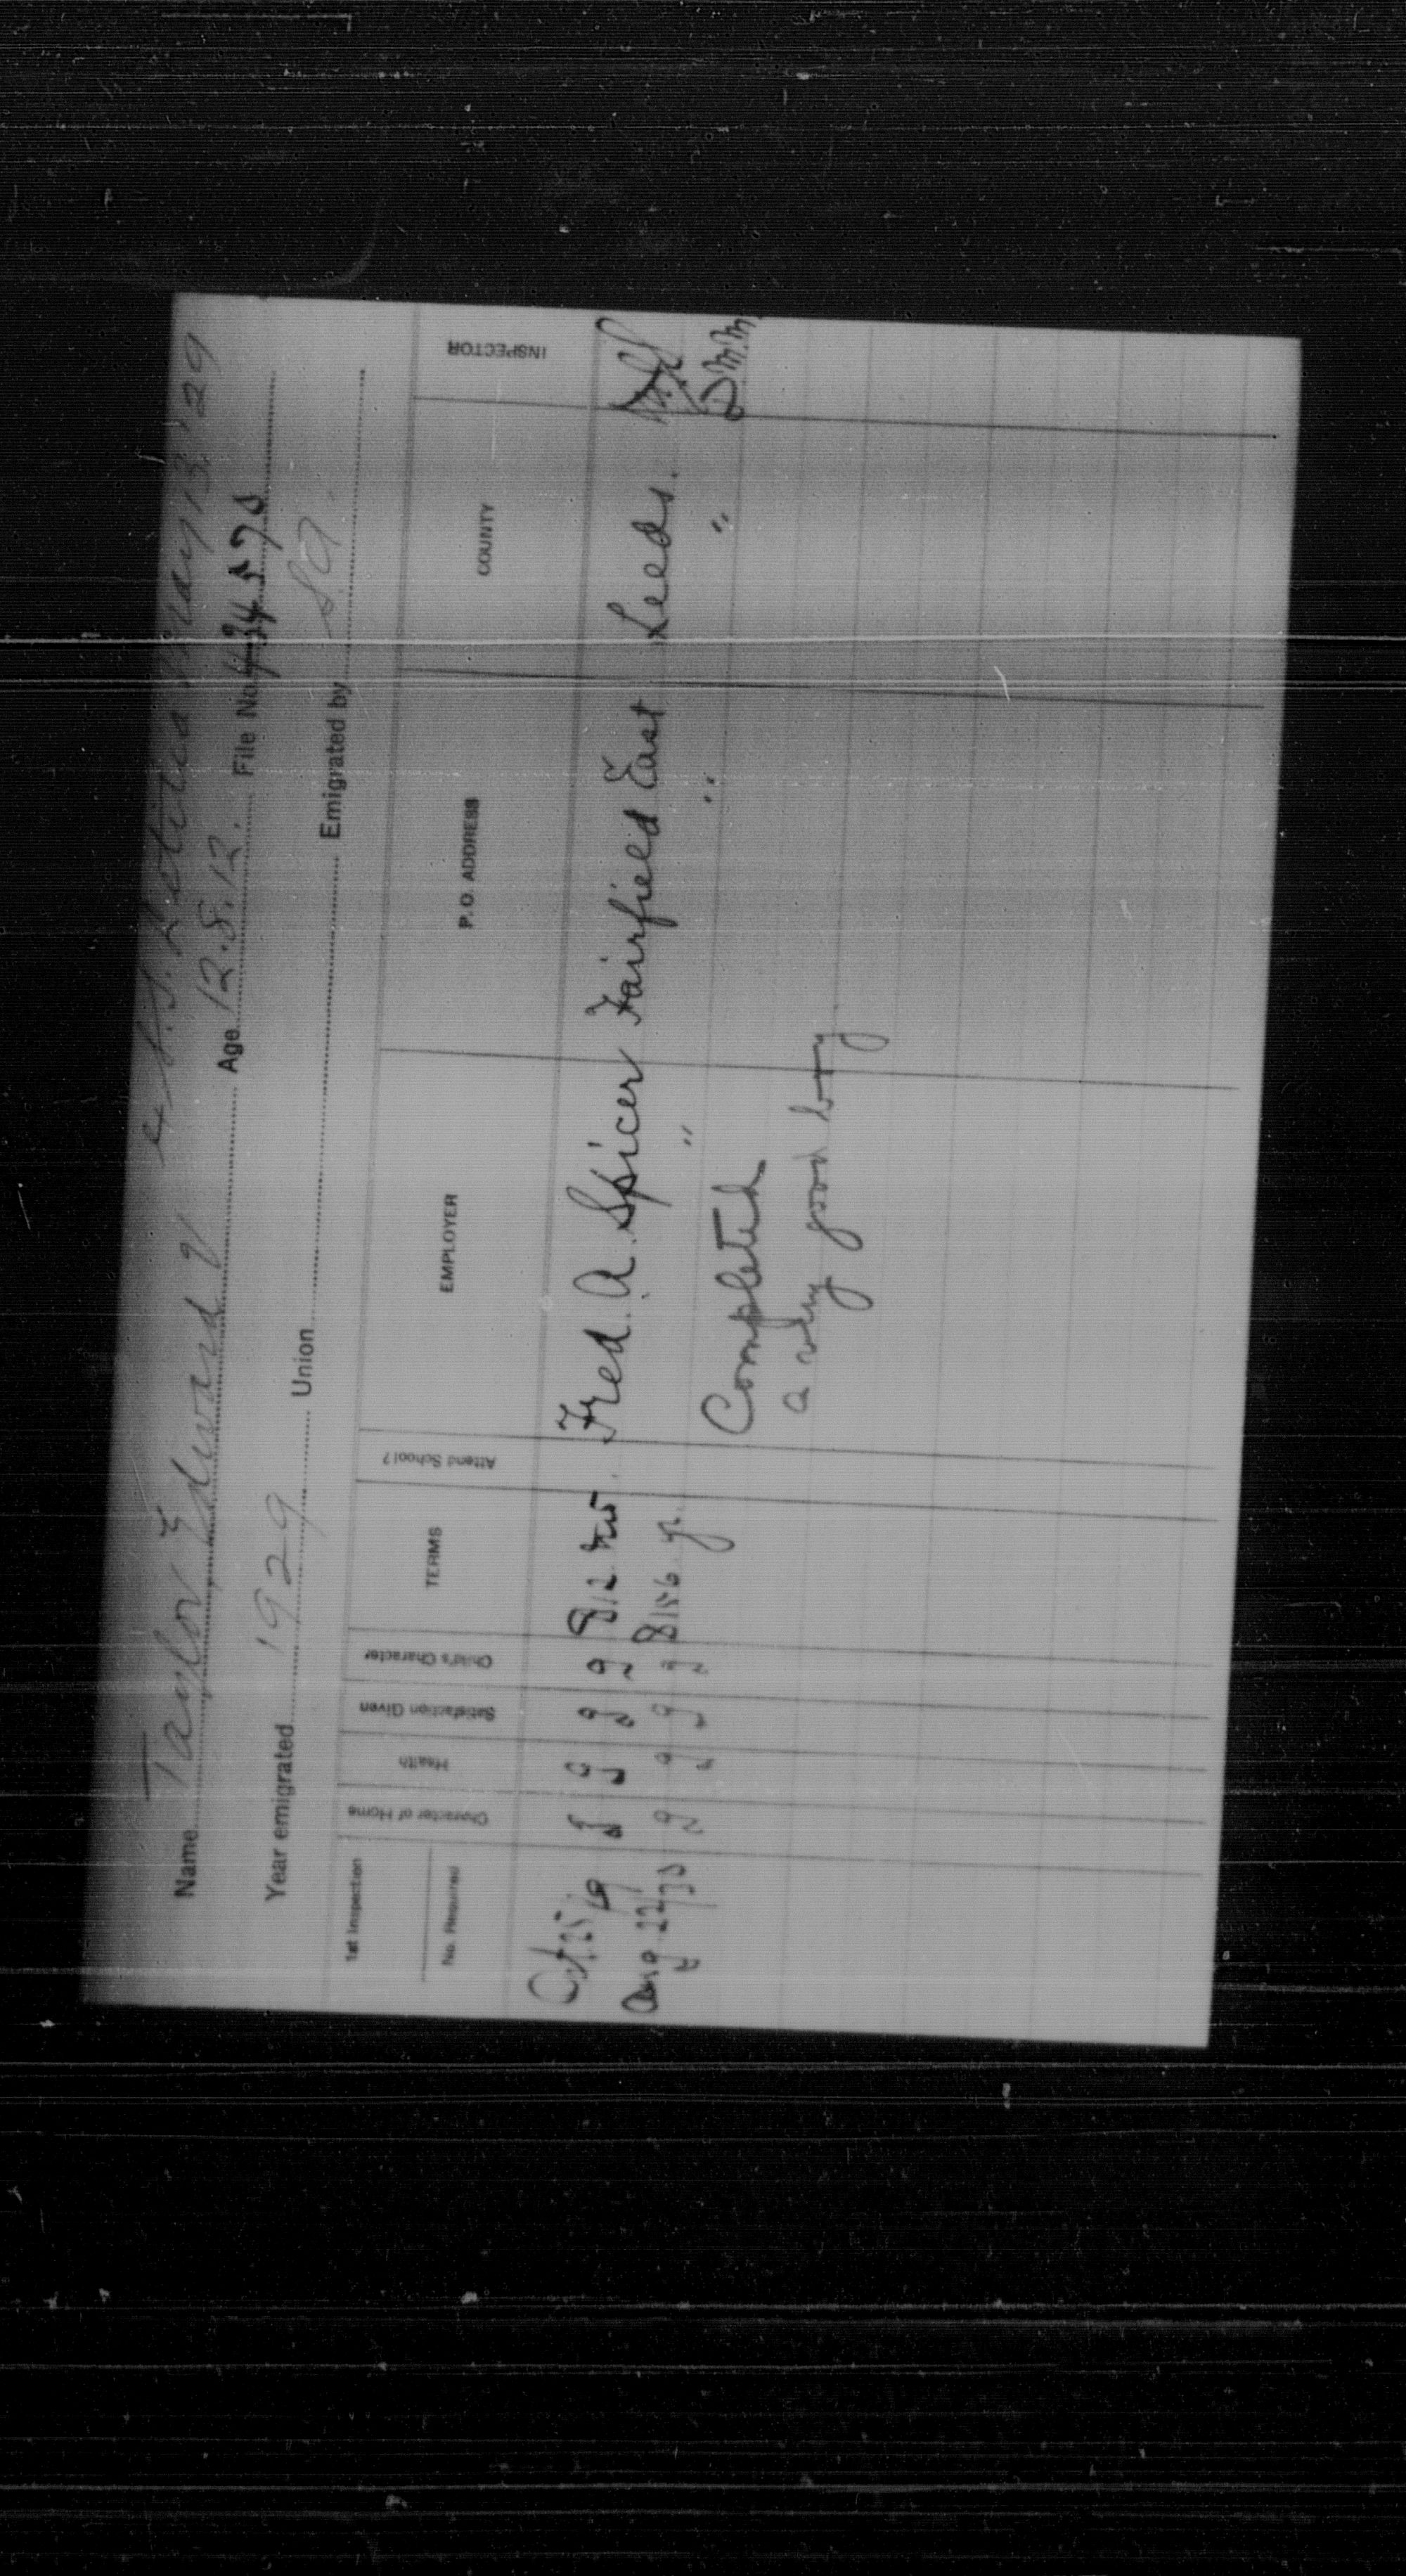 S.S. Letitia May 13, '29
Name Taylor Edward Age 12.8.12. File No.
Year emigrated 1929 Union Emigrated by S.A.
1st Inspection
No. Required Character of Home Health Satisfaction Given Child's Character TERMS Attend School? EMPLOYER P. O. ADDRESS COUNTY INSPECTOR
Oct 25 g g g g Fred. A. Spicer Fairfield East Leeds.
Aug 22/30 g g g g " " " D.M.M.
Completed
a very good boy